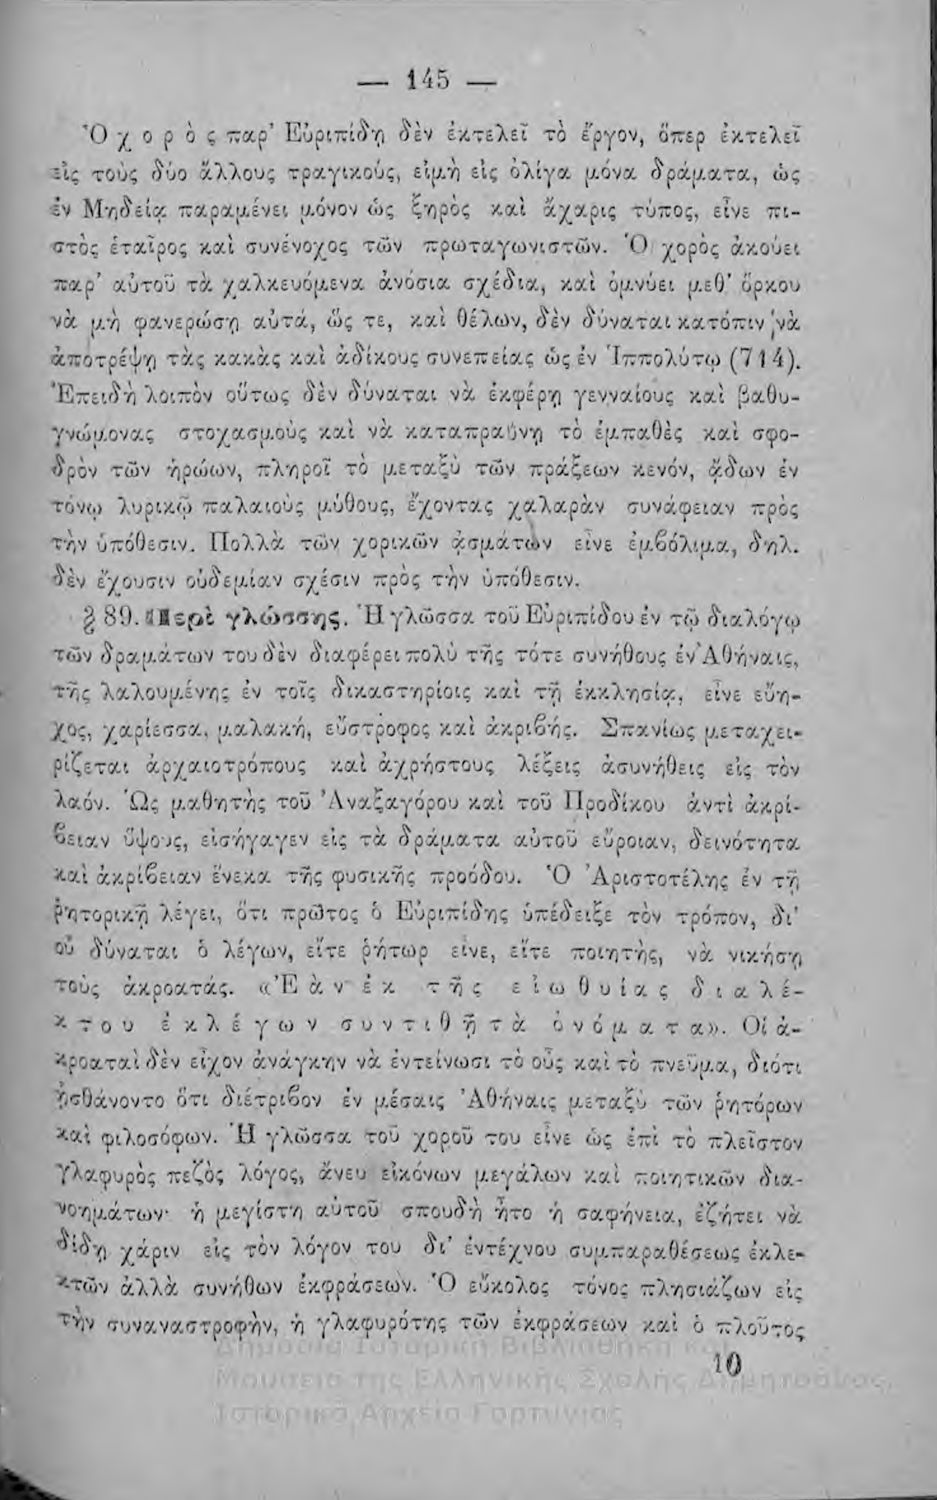 — 145 —
Ὁ χ ο ρ ὸ ς παρ’ Εὐριπίδῃ δὲν ἐκτελεῖ τὸ ἔργον, ὅπερ ἐκτελεῖ
εἰς τοὺς δύο ἄλλους τραγικούς, εἰμὴ εἰς ὀλίγα μόνα δράματα, ὡς
ἐν Μηδείᾳ παραμένει μόνον ὡς ξηρὸς καὶ ἄχαρις τύπος, εἶνε πι-
στὸς ἑταῖρος καὶ συνένοχος τῶν πρωταγωνιστῶν. Ὁ χορὸς ἀκούει
παρ’ αὐτοῦ τὰ χαλκευόμενα ἀνόσια σχέδια, καὶ ὀμνύει μεθ’ ὅρκου
νὰ μὴ φανερώσῃ αὐτά, ὥς τε, καὶ θέλων, δὲν δύναται κατόπιν νὰ
ἀποτρέψῃ τὰς κακὰς καὶ ἀδίκους συνεπείας ὡς ἐν Ἱππολύτῳ (714).
Ἐπειδὴ λοιπὸν οὕτως δὲν δύναται νὰ ἐκφέρῃ γενναίους καὶ βαθυ-
γνώμονας στοχασμοὺς καὶ νὰ καταπραΰνῃ τὸ ἐμπαθὲς καὶ σφο-
δρὸν τῶν ἡρώων, πληροῖ τὸ μεταξὺ τῶν πράξεων κενόν, ᾄδων ἐν
τόνῳ λυρικῷ παλαιοὺς μύθους, ἔχοντας χαλαρὰν συνάφειαν πρὸς
τὴν ὑπόθεσιν. Πολλὰ τῶν χορικῶν ᾀσμάτων εἶνε ἐμβόλιμα, δηλ.
δὲν ἔχουσιν οὐδεμίαν σχέσιν πρὸς τὴν ὑπόθεσιν.
§ 89. Περὶ γλώσσης. Ἡ γλῶσσα τοῦ Εὐριπίδου ἐν τῷ διαλόγῳ
τῶν δραμάτων του δὲν διαφέρει πολὺ τῆς τότε συνήθους ἐν Ἀθήναις,
τῆς λαλουμένης ἐν τοῖς δικαστηρίοις καὶ τῇ ἐκκλησίᾳ, εἶνε εὔη-
χος, χαρίεσσα, μαλακή, εὔστροφος καὶ ἀκριβής. Σπανίως μεταχει-
ρίζεται ἀρχαιοτρόπους καὶ ἀχρήστους λέξεις ἀσυνήθεις εἰς τὸν
λαόν. Ὡς μαθητὴς τοῦ Ἀναξαγόρου καὶ τοῦ Προδίκου ἀντὶ ἀκρί-
βειαν ὕψους, εἰσήγαγεν εἰς τὰ δράματα αὐτοῦ εὔροιαν, δεινότητα
καὶ ἀκρίβειαν ἕνεκα τῆς φυσικῆς προόδου. Ὁ Ἀριστοτέλης ἐν τῇ
ῥητορικῇ λέγει, ὅτι πρῶτος ὁ Εὐριπίδης ὑπέδειξε τὸν τρόπον, δι’
οὗ δύναται ὁ λέγων, εἴτε ῥήτωρ εἶνε, εἴτε ποιητής, νὰ νικήσῃ
τοὺς ἀκροατάς. «Ἐ ὰ ν ἐ κ τ ῆ ς ε ἰ ω θ υ ί α ς δ ι α λ έ-
κ τ ο υ ἐ κ λ έ γ ω ν σ υ ν τ ι θ ῇ τ ὰ ὀ ν ό μ α τ α». Οἱ ἀ-
κροαταὶ δὲν εἶχον ἀνάγκην νὰ ἐντείνωσι τὸ οὖς καὶ τὸ πνεῦμα, διότι
ᾐσθάνοντο ὅτι διέτριβον ἐν μέσαις Ἀθήναις μεταξὺ τῶν ῥητόρων
καὶ φιλοσόφων. Ἡ γλῶσσα τοῦ χοροῦ του εἶνε ὡς ἐπὶ τὸ πλεῖστον
γλαφυρὸς πεζὸς λόγος, ἄνευ εἰκόνων μεγάλων καὶ ποιητικῶν δια-
νοημάτων· ἡ μεγίστη αὐτοῦ σπουδὴ ἦτο ἡ σαφήνεια, ἐζήτει νὰ
δίδῃ χάριν εἰς τὸν λόγον του δι’ ἐντέχνου συμπαραθέσεως ἐκλε-
κτῶν ἀλλὰ συνήθων ἐκφράσεων. Ὁ εὔκολος τόνος πλησιάζων εἰς
τὴν συναναστροφήν, ἡ γλαφυρότης τῶν ἐκφράσεων καὶ ὁ πλοῦτος
10
Δημόσια Ιστορική Βιβλιοθήκη και
Μουσείο της Ελληνικής Σχολής Δημητσάνας,
Ιστορικό Αρχείο Γορτυνίας